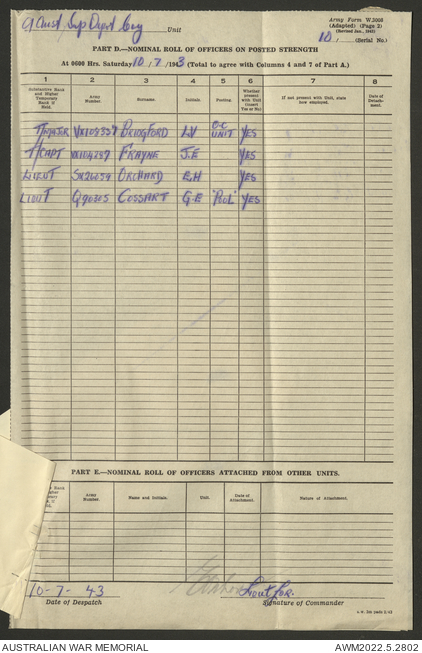 9 Aust Sup Depot Coy Unit
Army Form W.3008
(Adapted) (Page 2)
(Revised Jan., 1943)
10. (Serial No.)
PART D.—NOMINAL ROLL OF OFFICERS ON POSTED STRENGTH
At 0600 Hrs. Saturday 10 / 7 / 1943 (Total to agree with Columns 4 and 7 of Part A.)
1 2 3 4 5 6 7 8
Substantive Rank and Higher Temporary Rank if Held. Army Number. Surname. Initials. Posting. Whether present with Unit (Insert Yes or No) If not present with Unit, state how employed. Date of Detachment.
T/MAJOR BRIDGFORD L.V O.C UNIT YES
T/CAPT FRAYNE J.E YES
LIEUT ORCHARD E.H YES
LIEUT Q90305 COSSART G.E "POOL" YES
PART E.—NOMINAL ROLL OF OFFICERS ATTACHED FROM OTHER UNITS.
Rank Army Number. Name and Initials. Unit. Date of Attachment. Nature of Attachment.
10-7-43 Lieut for.
Date of Despatch Signature of Commander
AUSTRALIAN WAR MEMORIAL AWM2022.5.2802